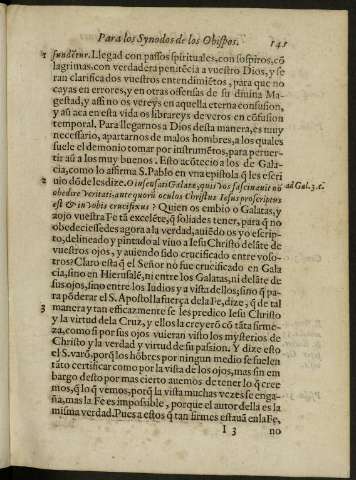 Para los Synodos de los Obispos. 141
fundētur. Llegad con passos spirituales, con sospiros, cō
lagrimas, con verdadera penitēcia a vuestro Dios, y se
ran clarificados vuestros entendimiētos, para que no
cayas en errores, y en otras offensas de su diuina Ma-
gestad, y assi no os vereys en aquella eterna confusion,
y aū aca en esta vida os librareys de veros en cōfusion
temporal. Para llegarnos a Dios desta manera, es muy
necessario, apartarnos de malos hombres, a los quales
suele el demonio tomar por instrumētos, para peruer-
tir aū a los muy buenos. Esto acōtecio a los de Gala-
cia, como lo affirma S. Pablo en vna epistola q̄ les escri
2 uio dōde les dize. O insensati Galatæ, quis vos fascinauit nō ad Gal. 3. c.
obedire veritati: ante quorū oculos Christus Iesus proscriptus
est & in vobis crucifixus? Quien os embio o Galatas, y
aojo vuestra Fe tā excelēte, q̄ soliades tener, para q̄ no
obedeciessedes agora a la verdad, auiēdo os yo escrip-
to, delineado y pintado al viuo a Iesu Christo delāte de
vuestros ojos, y auiendo sido crucificado entre voso-
tros? Claro esta q̄ el Señor nō fue crucificado en Gala
cia, sino en Hierusalē, ni entre los Galatas, ni delāte de
sus ojos, sino entre los Iudios y a vista dellos, sino q̄ pa-
ra pōderar el S. Apostol la fuerça de la Fe, dize, q̄ de tal
3 manera y tan efficazmente se les predico Iesu Christo
y la virtud de la Cruz, y ellos la creyerō cō tāta firme-
za, como si por sus ojos vuieran visto los mysterios de
Christo y la verdad y virtud de su passion. Y dize esto
el S. varō, porq̄ los hōbres por ningun medio se suelen
tāto certificar como por la vista de los ojos, mas sin em
bargo desto por mas cierto auemos de tener lo q̄ cree
mos, q̄ lo q̄ vemos, porq̄ la vista muchas vezes se enga-
ña, mas la Fe es impossible, porque el autor della es la
misma verdad. Pues a estos q̄ tan firmes estauā en la Fe,
I 3 no